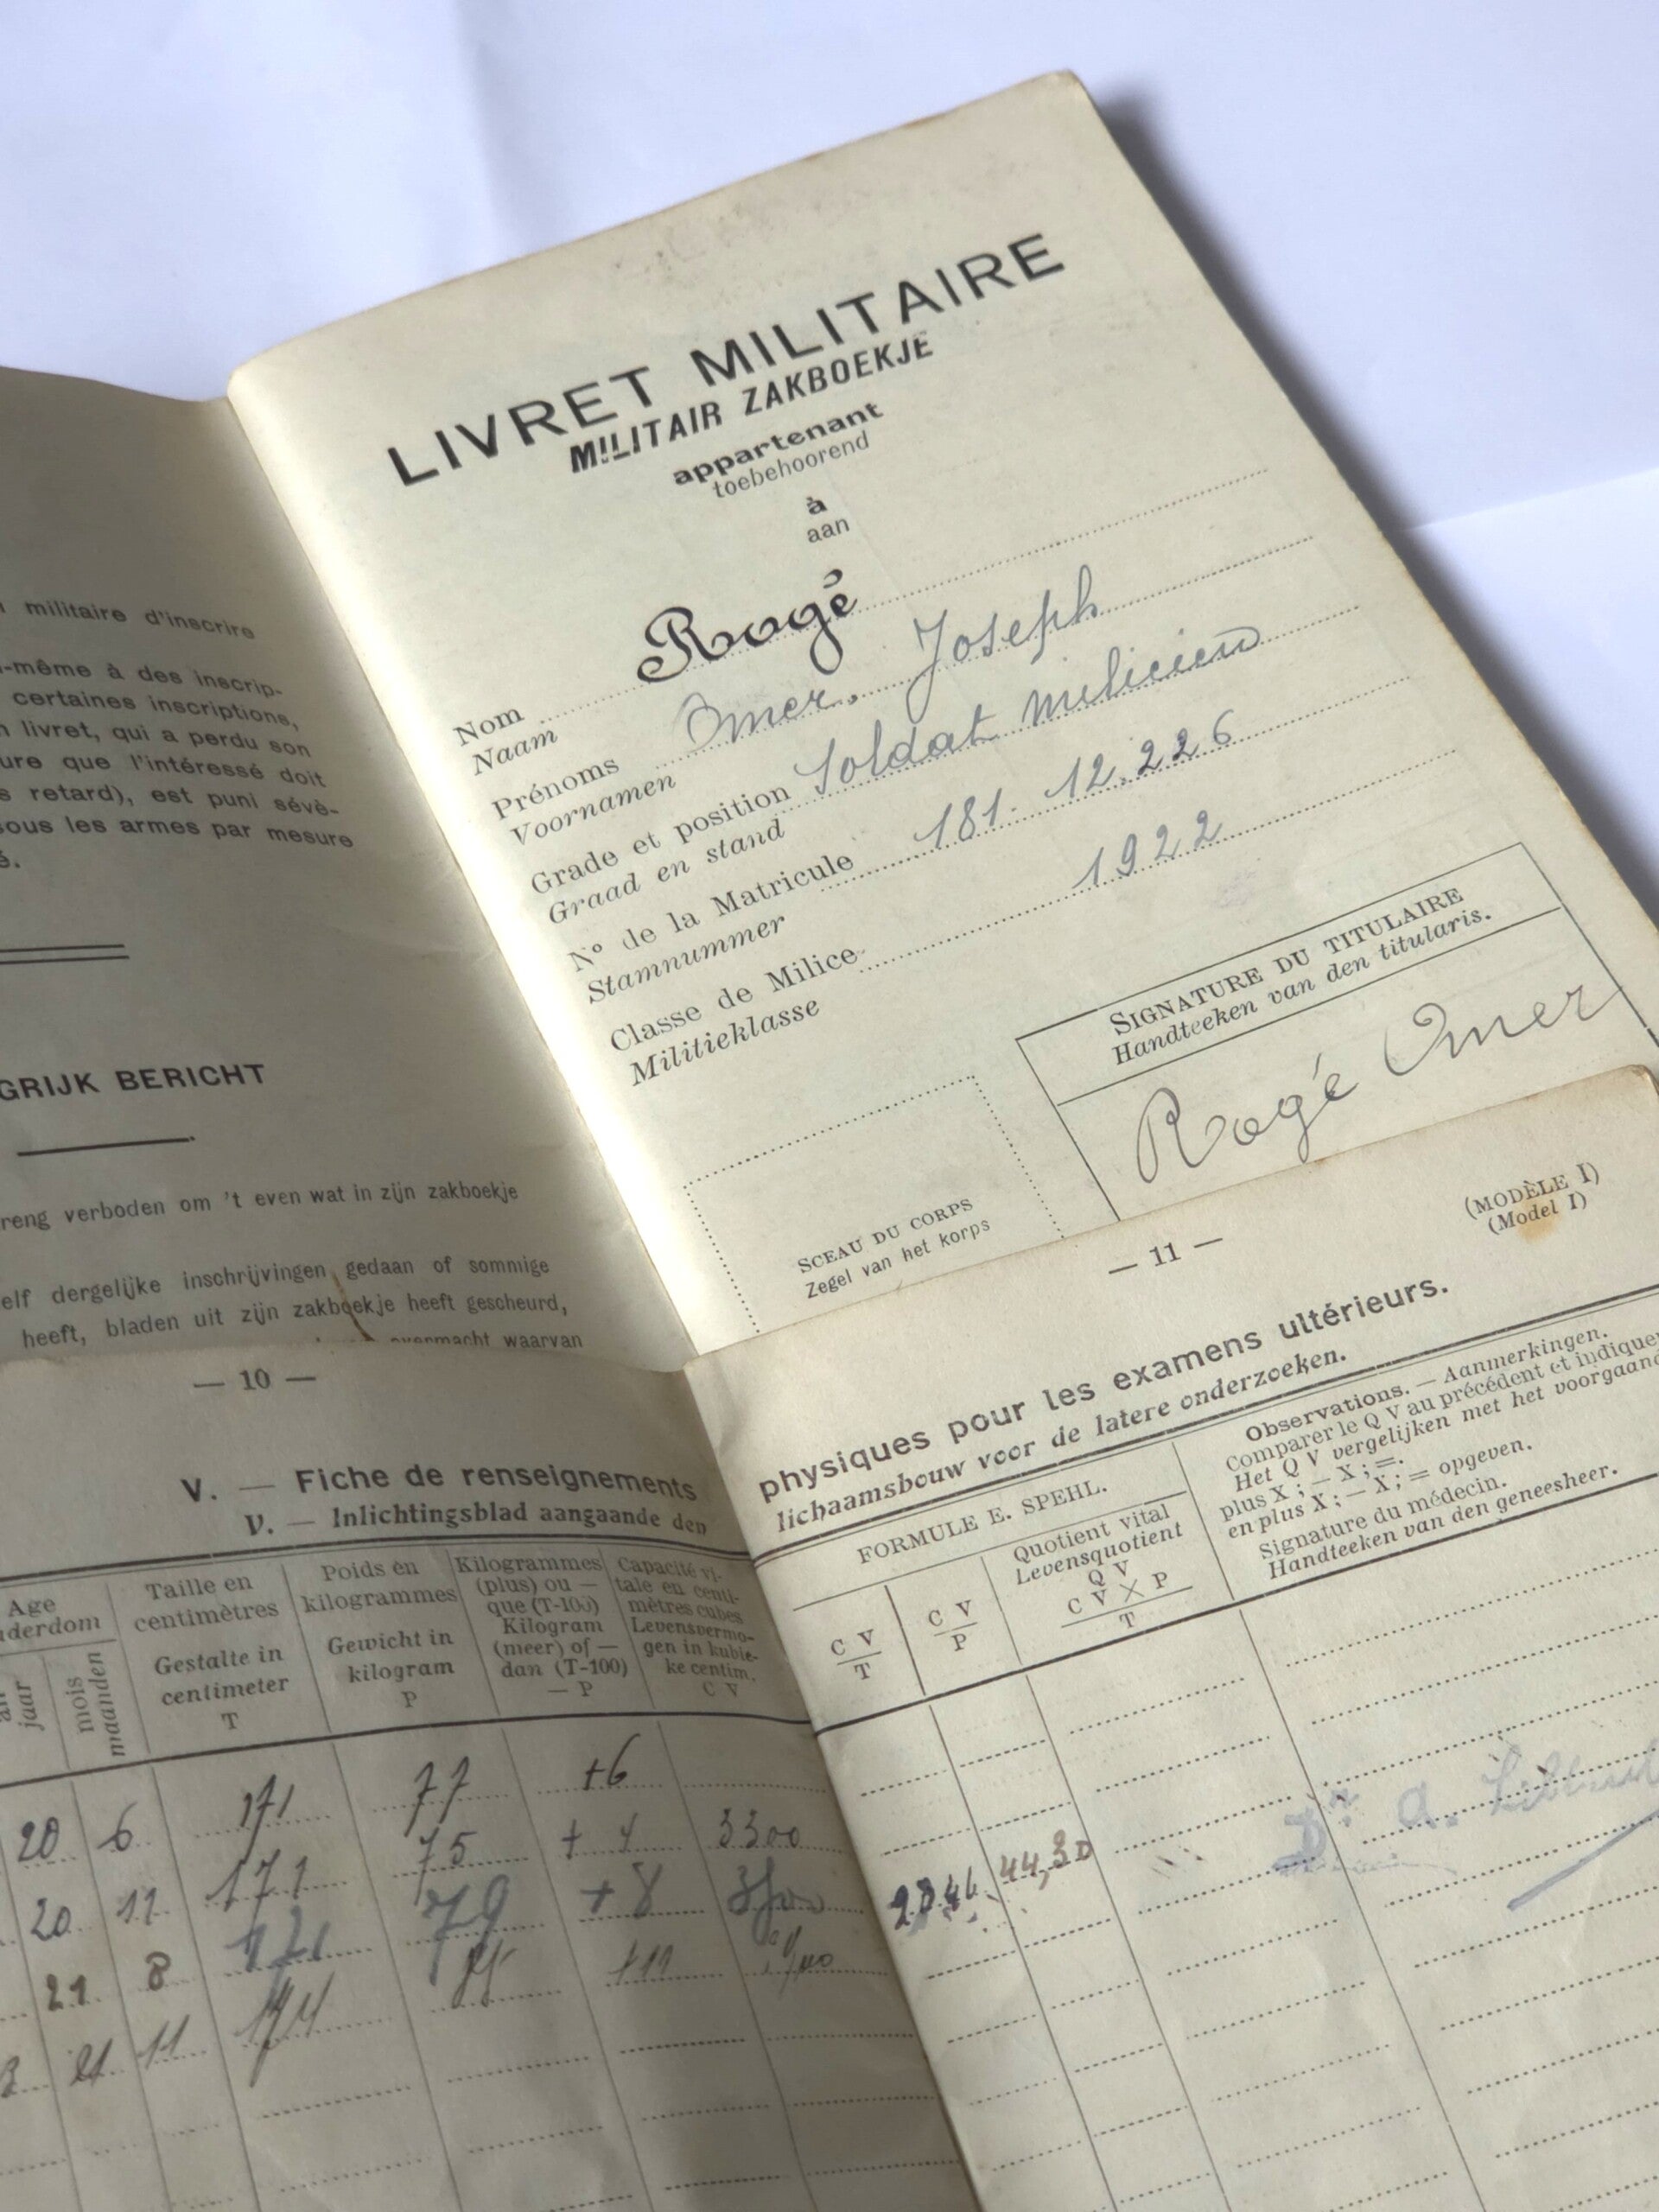 militaire d'inscrire
-même à des inscrip-
certaines inscriptions,
livret, qui a perdu son
ure que l'intéressé doit
s retard), est puni sévè-
sous les armes par mesure
é.
GRIJK BERICHT
reng verboden om 't even wat in zijn zakboekje
elf dergelijke inschrijvingen gedaan of sommige
heeft, bladen uit zijn zakboekje heeft gescheurd,
overmacht waarvan
LIVRET MILITAIRE
MILITAIR ZAKBOEKJE
appartenant
toebehoorend
à
aan
Nom Rogé
Naam
Prénoms Omer. Joseph
Voornamen
Grade et position Soldat milicien
Graad en stand
N° de la Matricule 181. 12.226
Stamnummer
Classe de Milice 1922
Militieklasse
SIGNATURE DU TITULAIRE
Handteeken van den titularis.
Rogé Omer
SCEAU DU CORPS
Zegel van het korps
— 10 —
V. — Fiche de renseignements
V. — Inlichtingsblad aangaande den
Age
derdom
an
jaar
mois
maanden
Taille en
centimètres
Gestalte in
centimeter
T
Poids en
kilogrammes
Gewicht in
kilogram
P
Kilogrammes
(plus) ou —
que (T-100)
Kilogram
(meer) of —
dan (T-100)
— P
Capacité vi-
tale en centi-
mètres cubes
Levensvermo-
gen in kubie-
ke centim.
C V
20 6 171 77 +6
20 11 171 75 + 4 3300
21 8 171 79 + 8
21 11 174 +11
— 11 —
(MODÈLE I)
(Model I)
physiques pour les examens ultérieurs.
lichaamsbouw voor de latere onderzoeken.
FORMULE E. SPEHL.
C V
T
C V
P
Quotient vital
Levensquotient
Q V
C V × P
T
Observations. — Aanmerkingen.
Comparer le Q V au précédent et indique
Het Q V vergelijken met het voorgaand
plus X ; — X ; =.
en plus X ; — X ; = opgeven.
Signature du médecin.
Handteeken van den geneesheer.
44,30
Dr A.